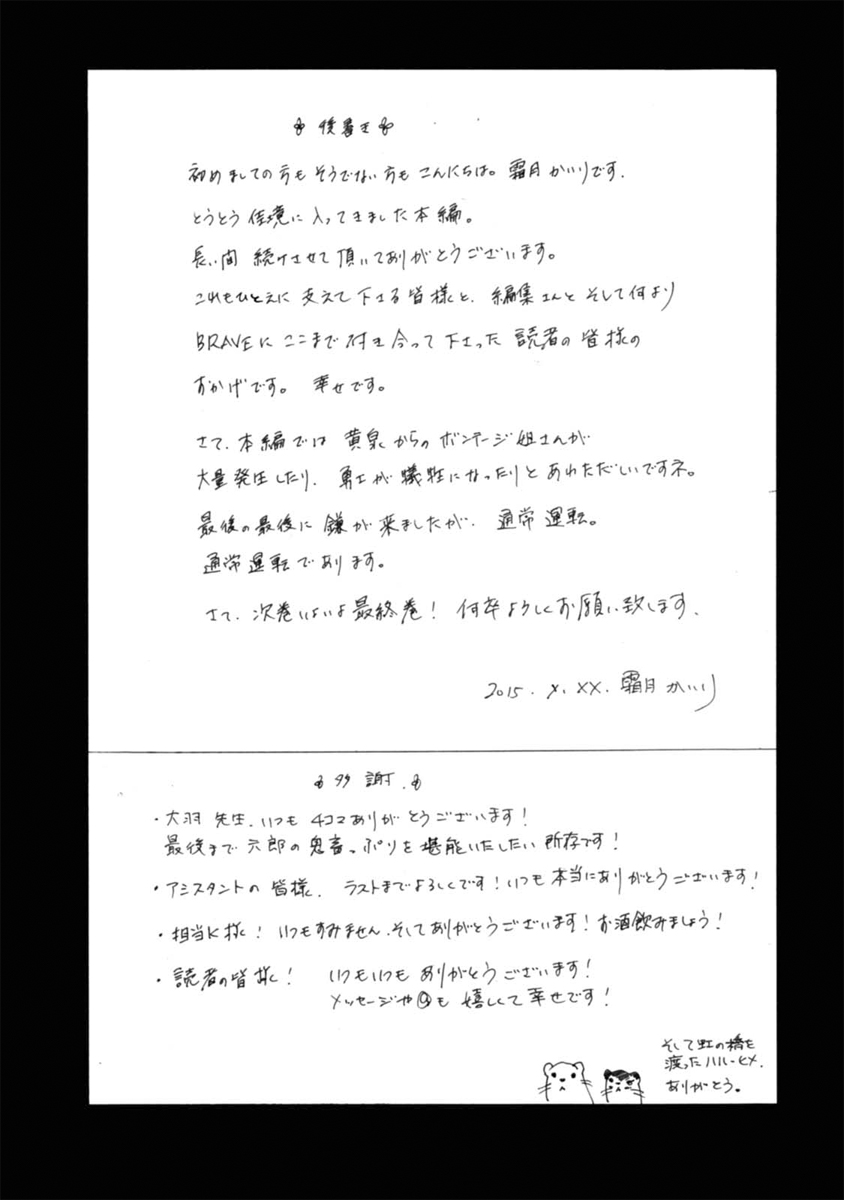 後書き
初めましての方もそうでない方もこんにちは。霜月かいりです.
とうとう佳境に入ってきました本編。
長い間 続けさせて頂いてありがとうございます。
これもひとえに 支えて下さる皆様と、編集さんと そして何より
BRAVEに ここまで 付き合って下さった 読者の皆様の
おかげです。 幸せです。
さて、本編では 黄泉からの ボンテージ姐さんが
大量発生したり、勇士が犠牲になったりと あわただしいですネ。
最後の最後に 鎌が来ましたが、通常運転。
通常運転であります。
さて、次巻いよいよ最終巻! 何卒よろしくお願い致します.
2015. X. XX. 霜月かいり
多謝
・大羽先生、いつも 4コマありがとうございます!
最後まで 六郎の鬼畜っぷりを堪能いたしたい所存です!
・アシスタントの皆様、ラストまでよろしくです! いつも本当にありがとうございます!
・担当K様! いつもすみません、そしてありがとうございます! お酒飲みましょう!
・読者の皆様! いつもいつも ありがとうございます!
メッセージや も 嬉しくて幸せです!
そして虹の橋を
渡ったハル-ヒメ、
ありがとう。